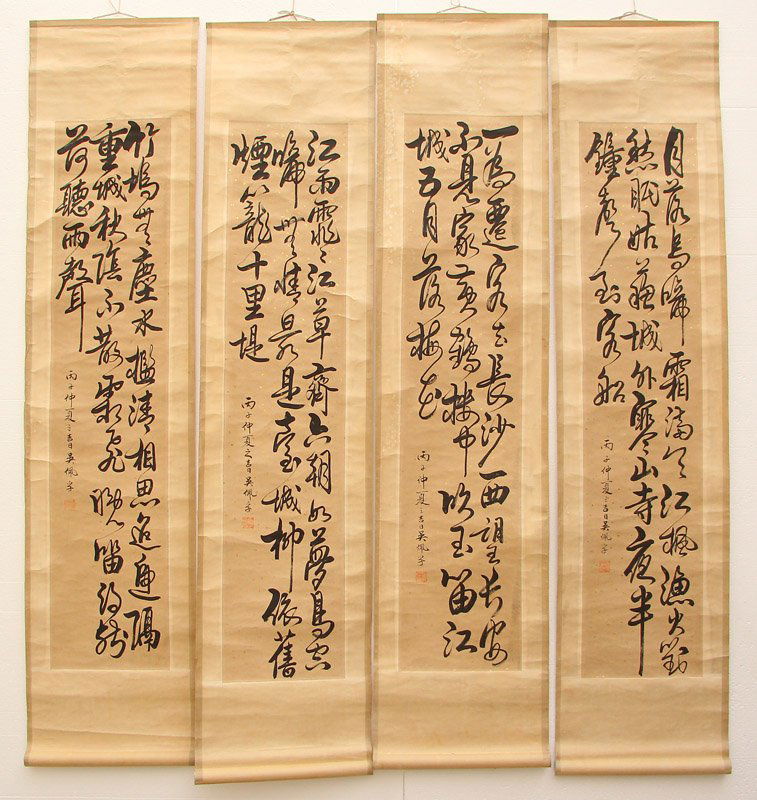 月落烏啼霜滿天江楓漁火對
愁眠姑蘇城外寒山寺夜半
鐘聲到客船
丙子仲夏之吉日吳佩孚
一為遷客去長沙西望長安
不見家黃鶴樓中吹玉笛江
城五月落梅花
丙子仲夏之吉日吳佩孚
江雨霏々江草齊六朝如夢鳥空
啼無情最是臺城柳依舊
煙籠十里堤
丙子仲夏之吉日吳佩孚
竹塢無塵水檻清相思迢遞隔
重城秋陰不散霜飛晚留得殘
荷聽雨聲
丙子仲夏之吉日吳佩孚